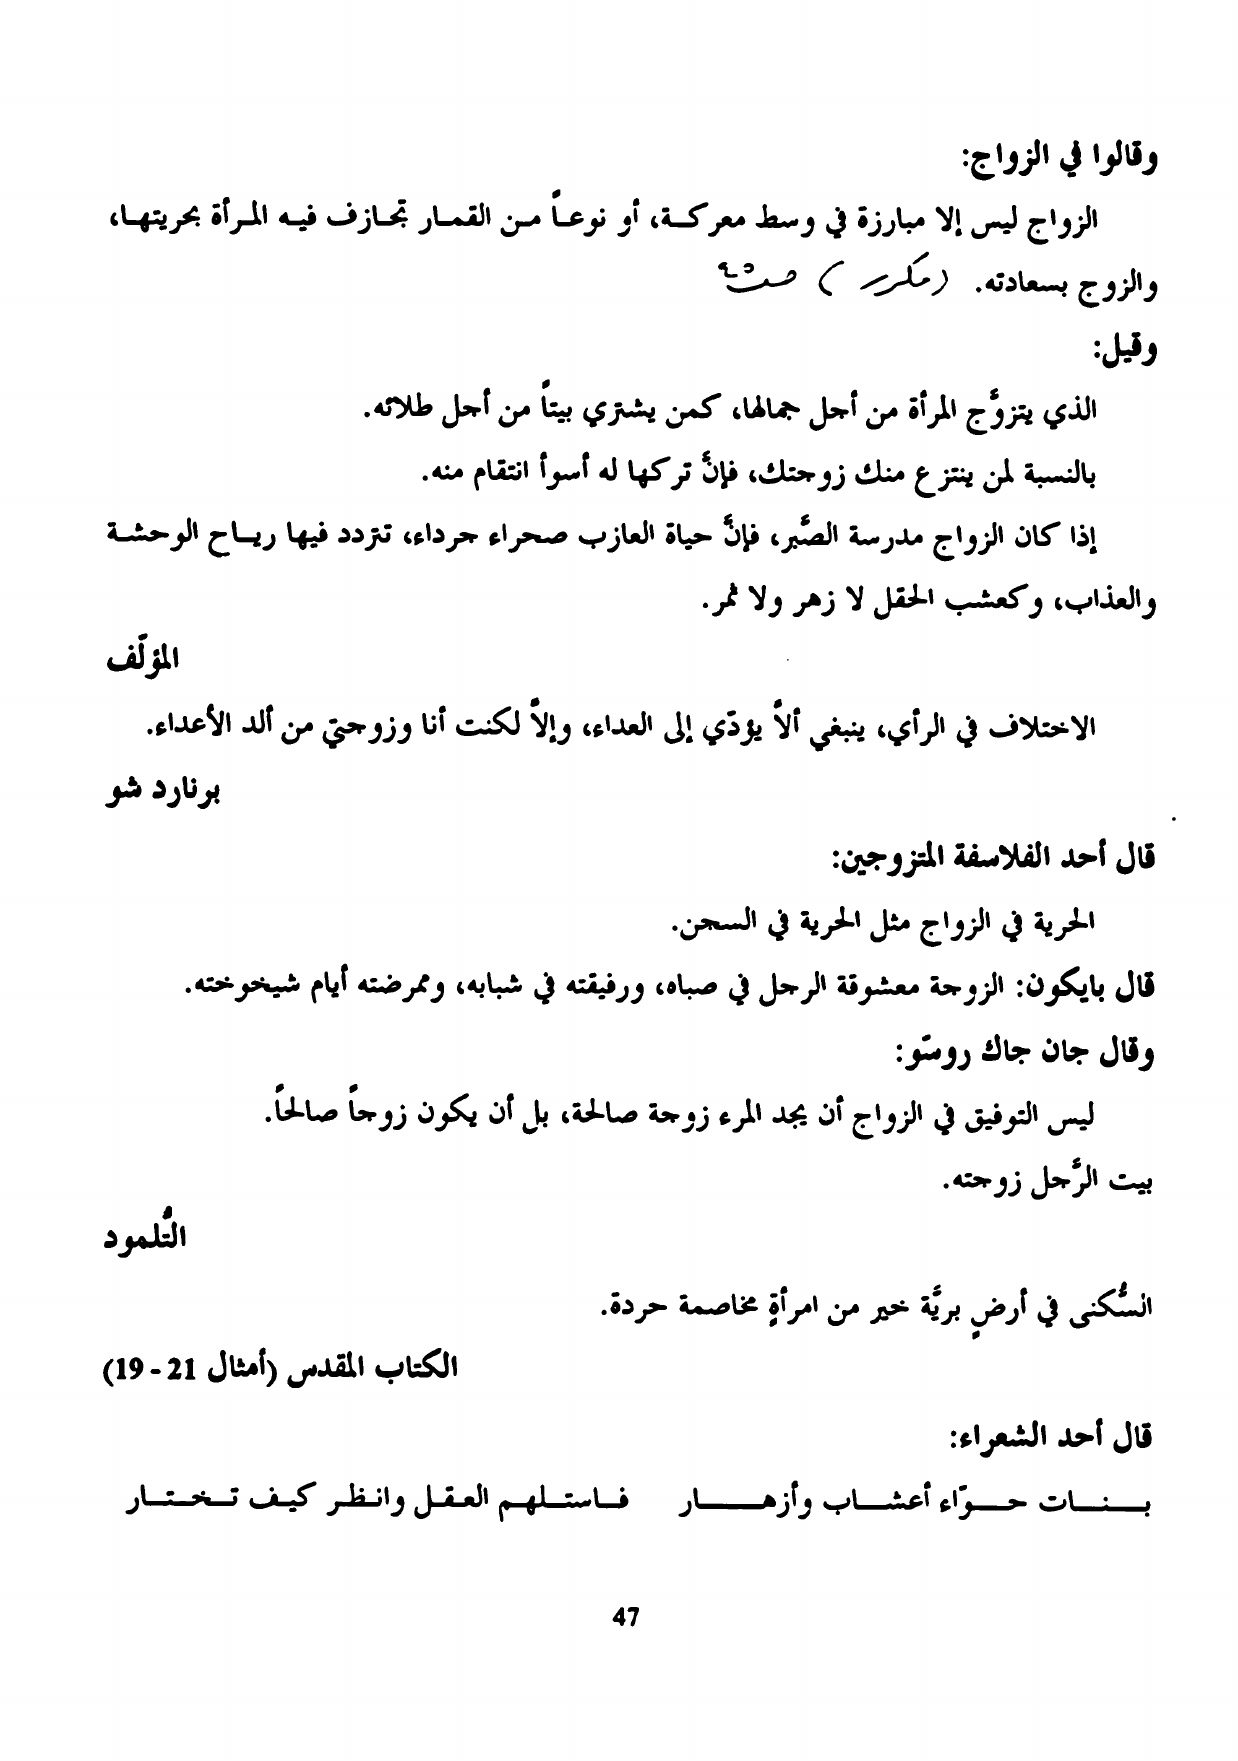 وقالوا في الزواج:
الزواج ليس إلا مبارزة في وسط معركة، أو نوعاً من القمار تجازف فيه المرأة بحريتها،
والزوج بسعادته. (مكرر)
وقيل:
الذي يتزوَّج المرأة من أجل جمالها، كمن يشتري بيتاً من أجل طلائه.
بالنسبة لمن ينتزع منك زوجتك، فإنَّ تركها له أسوأ انتقام منه.
إذا كان الزواج مدرسة الصَّبر، فإنَّ حياة العازب صحراء جرداء، تتردد فيها رياح الوحشة
والعذاب، وكعشب الحقل لا زهر ولا ثمر.
المؤلّف
الاختلاف في الرأي، ينبغي ألاَّ يؤدّي إلى العداء، وإلاَّ لكنت أنا وزوجتي من ألد الأعداء.
برنارد شو
قال أحد الفلاسفة المتزوجين:
الحرية في الزواج مثل الحرية في السجن.
قال بايكون: الزوجة معشوقة الرجل في صباه، ورفيقته في شبابه، وممرضته أيام شيخوخته.
وقال جان جاك روسّو:
ليس التوفيق في الزواج أن يجد المرء زوجة صالحة، بل أن يكون زوجاً صالحاً.
بيت الرَّجل زوجته.
التُّلمود
السُّكنى في أرضٍ بريَّة خير من امرأةٍ مخاصمة حردة.
الكتاب المقدس (أمثال 21 - 19)
قال أحد الشعراء:
بـــنــات حـــوّاء أعشـــاب وأزهـــار فــاستــلهــم العقــل وانــظــر كيــف تــخــتــار
47